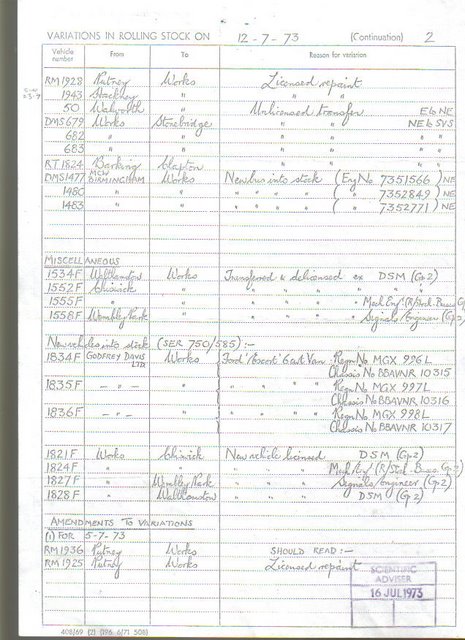 VARIATIONS IN ROLLING STOCK ON 12-7-73 (Continuation) 2
Vehicle number From To Reason for variation
RM1928 Putney Works Licensed repaint
1943 Hackney " " "
50 Walworth " Unlicensed transfer E to NE
DMS679 Works Stonebridge " " NE to SVS
682 " " " " " "
683 " " " " " "
RT1824 Barking Clapton " " " "
DMS1477 MCW BIRMINGHAM Works New bus into stock (Eng No 7351566) NE
1480 " " " " " " ( " " 7352849) NE
1483 " " " " " " ( " " 7352771) NE
MISCELLANEOUS
1534F Walthamstow Works Transferred & delicensed ex DSM (Gp2)
1552F Chiswick " " " " " " "
1555F " " " " " " Mech Eng (R/Stock Buses Gp
1558F Wembley Park " " " " " Signals/Engineer (Gp2)
New vehicles into stock (SER 750/585) :-
1834F GODFREY DAVIS LTD Works Ford 'Escort' 6cwt Van Regn No MGX 996L
Chassis No BBAVNR 10315
1835F - " - " " " " " Regn No MGX 997L
Chassis No BBAVNR 10316
1836F - " - " " " " " Regn No MGX 998L
Chassis No BBAVNR 10317
1821F Works Chiswick New vehicle licensed DSM (Gp2)
1824F " " " " " Mech Eng (R/Stock Buses Gp2)
1827F " Wembley Park " " " Signals/Engineer (Gp2)
1828F " Walthamstow " " " DSM (Gp2)
AMENDMENTS TO VARIATIONS
(1) FOR 5-7-73
RM1936 Putney Works SHOULD READ :-
RM1925 Putney Works Licensed repaint
SCIENTIFIC
ADVISER
16 JUL 1973
408/69 (2) (196 6/71 508)